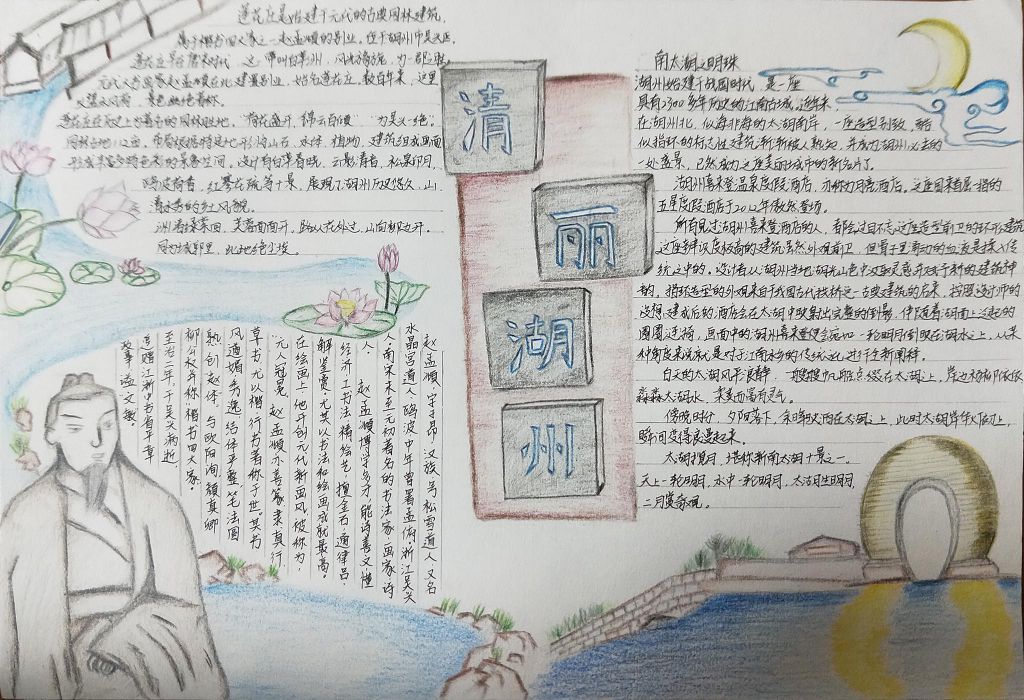 莲花庄是始建于元代的古典园林建筑,
属于楷书四大家之一赵孟頫的别业。位于湖州市吴兴区,
莲花庄早在唐宋时代,这一带叫白苹洲,风光旖旎,为一郡之胜。
元代大书画家赵孟頫在此建造别业,始名莲花庄,数百年来,这里
景色幽绝著称。
莲花庄在历史上为著名的园林胜地,"荷花盛开,锦云百顷"
园林占地112亩,
形成丰富多特色来的景色空间。设计有白苹春晓,云影清音,松风印月,
鸥波荷香,红蓼花疏等十景,展现了湖州历史悠久、山
清水秀的江风貌。
洲有绿菜园,芙蓉面面开,路从花外过,山向郭边开。
风土城郭里,此地绝尘埃。
清
丽
湖
州
南太湖之明珠
湖州始建于战国时代,是一座
具有2300多年历史的江南古城。近年来,
在湖州北,似海非海的太湖南岸,一座造型别致,酷
似指环的标志性建筑,渐渐被人熟知,并成为湖州必去的
一处盛景,已然成为这座美丽城市的新名片了。
湖州喜来登温泉度假酒店,亦称为月亮酒店。这座国内首屈一指的
五星度假酒店于2012年傲然登场。
所有见过湖州喜来登酒店的人,都会过目不忘这座造型前卫的环形建筑
这座辨识度极高的建筑虽然外观前卫,但骨子里高动的血液是深入传
统之中的。设计者从湖州当地湖光山色中汲取灵感并赋予新的建筑神
韵,指环造型的外观来自于我国古代拱桥这一古典建筑的启来,按照设计师的
设想,建成后的酒店会在太湖中映射出完整的倒影,伴随着湖面上泛起的
圈圈涟漪,画面中的湖州喜来登便会宛如一轮明月倒映在湖水之上,从某
种角度来说就是对于江南水乡的传统文化进行全新阐释。
白天的太湖风平浪静,一艘艘帆船点缀在太湖之上,岸边杨柳依依
淼淼太湖水,柔美而富有灵气。
傍晚时分,夕阳落下,余晖映洒在太湖之上,此时太湖岸华灯初上,
瞬间变得浪漫起来。
太湖揽月,堪称新南太湖十景之一。
天上一轮明月,水中一轮明月,太湖生明月,
二月赏奇观。
赵孟頫,字子昂,汉族,号松雪道人,又名
水晶宫道人,鸥波,中年曾署孟俯,浙江吴兴
人,南宋末至元初著名的书法家,画家,诗
人。
赵孟頫博学多才,能诗善文,懂
经济,工书法,精绘艺,擅金石,通律吕,
解鉴赏。尤其以书法和绘画成就最高。
在绘画上,他开创元代新画风,被称为,
元人冠冕,赵孟頫亦善篆,隶,真,行,
草书,尤以楷,行书著称于世。其书
风遒媚秀逸,结体严整,笔法圆
熟,创"赵体",与欧阳询,颜真卿
柳公权并称"楷书四大家。"
至治二年,于吴兴病逝,
追赠江浙中书省平章
政事,谥"文敏。